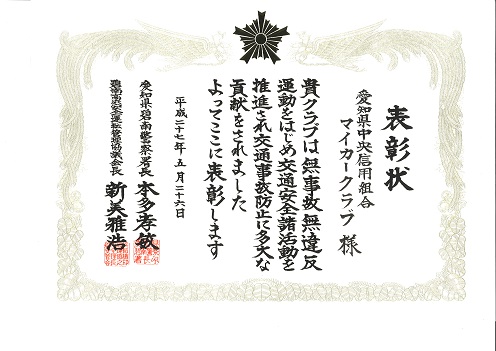 表彰状
愛知県中央信用組合
マイカークラブ 様
貴クラブは無事故無違反
運動をはじめ交通安全諸活動を
推進され交通事故防止に多大な
貢献をされました
よってここに表彰します
平成二十七年五月二十六日
愛知県碧南警察署長 本多孝敏
碧南市安全運転管理協議会長 新美雅浩